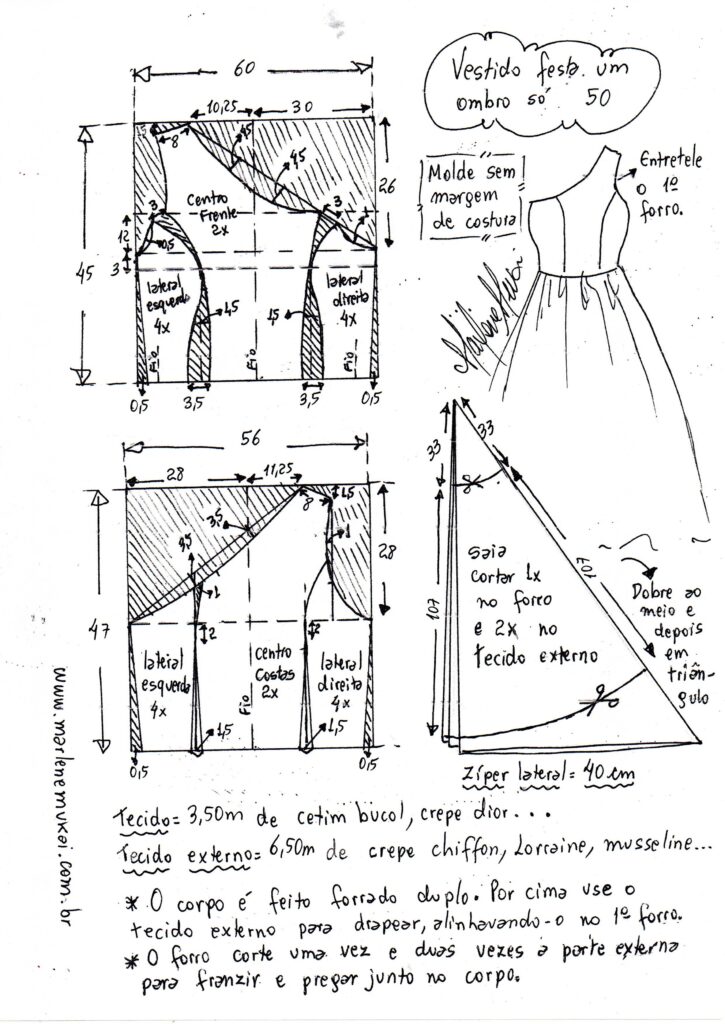 Vestido festa um
ombro só 50
Molde sem
margem
de costura
Entretele
o 1º
forro.
60
10,25
30
1,5
8
4,5
4,5
26
45
Centro
Frente
2x
3
3
1
12
0,5
3
lateral
esquerda
4x
lateral
direita
4x
1,5
1,5
Fio
Fio
Fio
0,5
3,5
3,5
0,5
56
28
11,25
8
1,5
3,5
3,5
1
1
28
47
2
2
lateral
esquerda
4x
centro
Costas
2x
lateral
direita
4x
Fio
1,5
1,5
0,5
0,5
33
33
107
107
Saia
cortar 1x
no forro
e 2x no
tecido externo
Dobre ao
meio e
depois
em
triân-
gulo
Zíper lateral = 40 cm
Tecido= 3,50m de cetim bucol, crepe dior...
Tecido externo= 6,50m de crepe chiffon, Lorraine, musseline...
* O corpo é feito forrado duplo. Por cima use o
tecido externo para drapear, alinhavando-o no 1º forro.
* O forro corte uma vez e duas vezes a parte externa
para franzir e pregar junto no corpo.
www.marlenemukai.com.br